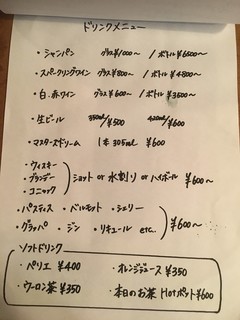 ドリンクメニュー
・シャンパン グラス¥1000〜 / ボトル¥6500〜
・スパークリングワイン グラス¥800〜 / ボトル¥4800〜
・白、赤ワイン グラス¥600〜 / ボトル¥3500〜
・生ビール 350ml/¥500 420ml/¥600
・マスターズドリーム 1本 305ml ¥600
・ウィスキー
・ブランデー ショット or 水割り or ハイボール ¥600〜
・コニャック
・パスティス ・ベルモット ・シェリー
・グラッパ ・ジン ・リキュール etc. ¥600〜
ソフトドリンク
・ペリエ ¥400 ・オレンジジュース ¥350
・ウーロン茶 ¥350 ・本日のお茶 Hotポット ¥600